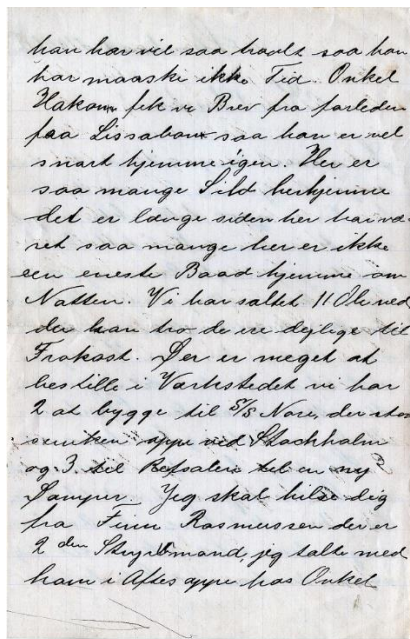 han har vel saa travlt saa han
har maaske ikke Tid. Onkel
Hakon fik vi Brev fra forleden
fra Lissabon saa han er vel
snart hjemme igen. Her er
saa mange Sild herhjemme
det er længe siden her har væ-
ret saa mange her er ikke
een eneste Baad hjemme om
Natten. Vi har saltet 11 Ol ned
der kan tro de ere dejlige til
Frokost. Der er meget at
bestille i Værkstedet vi har
2 at bygge til S/S Nore, der
oppe ved Stockholm
og 3 til til en ny
Damper. Jeg skal hilse dig
fra Finn Rasmussen der er
2 den Styrmand, jeg talte med
ham i Aftes oppe hos Onkel